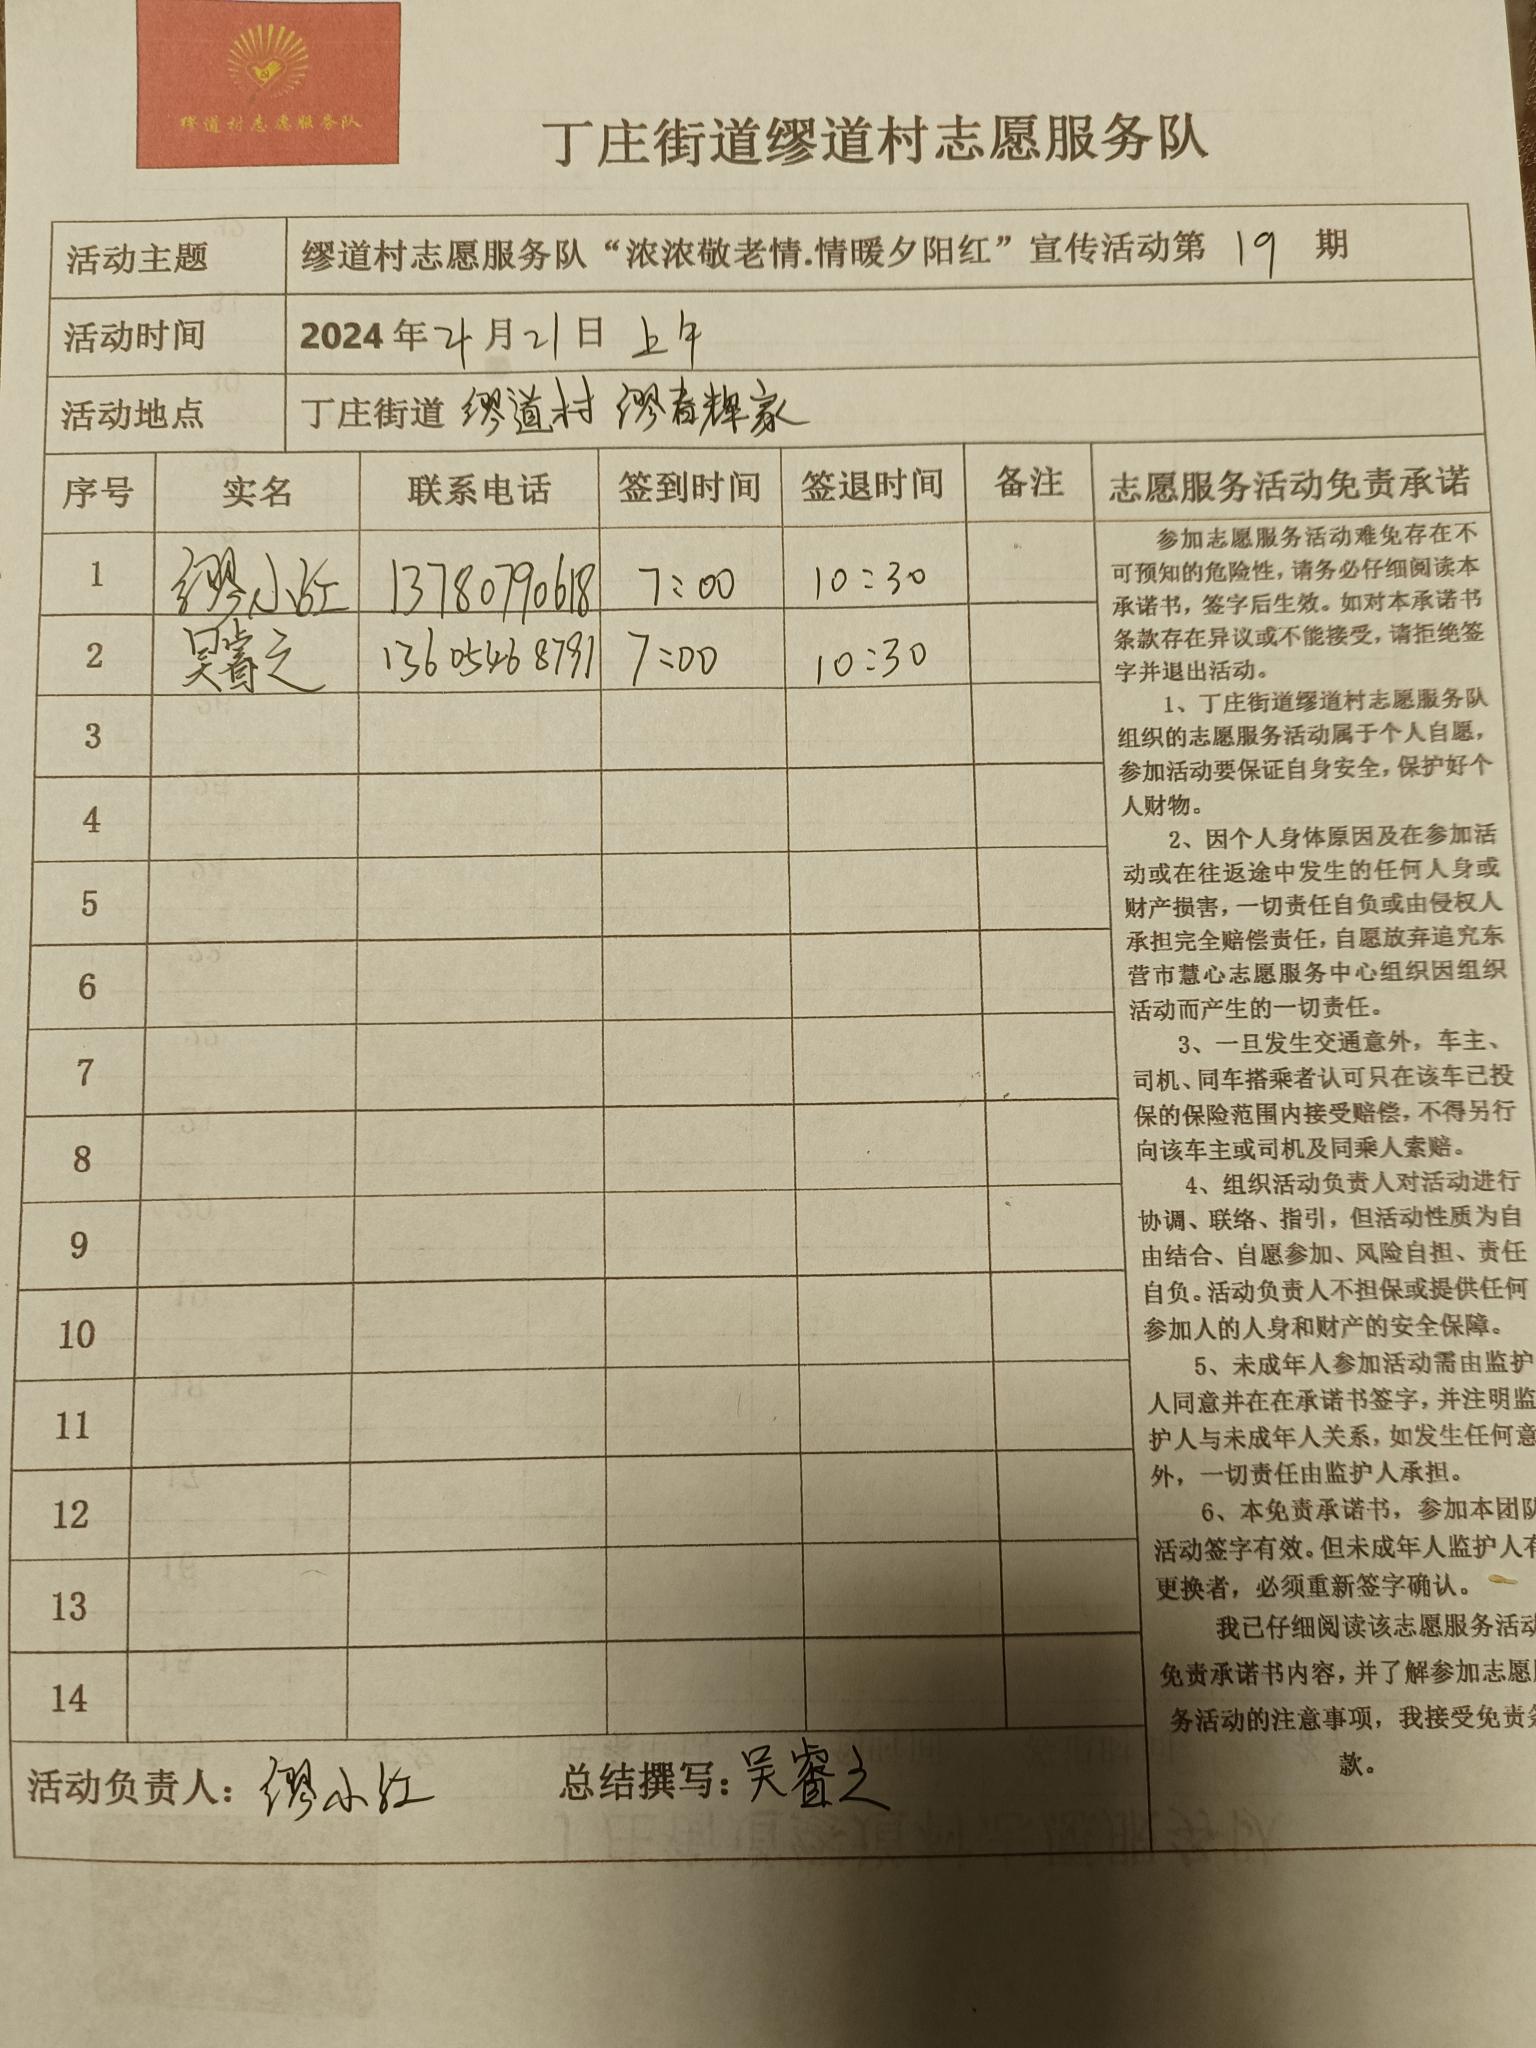 缪道村志愿服务队
丁庄街道缪道村志愿服务队
活动主题 缪道村志愿服务队“浓浓敬老情.情暖夕阳红”宣传活动第 19 期
活动时间 2024年4月21日 上午
活动地点 丁庄街道 缪道村 缪春辉家
序号 实名 联系电话 签到时间 签退时间 备注
1 缪小红 13780790618 7:00 10:30
2 吴睿之 13605468791 7:00 10:30
3
4
5
6
7
8
9
10
11
12
13
14
活动负责人：缪小红 总结撰写：吴睿之
志愿服务活动免责承诺
参加志愿服务活动难免存在不
可预知的危险性，请务必仔细阅读本
承诺书，签字后生效。如对本承诺书
条款存在异议或不能接受，请拒绝签
字并退出活动。
1、丁庄街道缪道村志愿服务队
组织的志愿服务活动属于个人自愿，
参加活动要保证自身安全，保护好个
人财物。
2、因个人身体原因及在参加活
动或在往返途中发生的任何人身或
财产损害，一切责任自负或由侵权人
承担完全赔偿责任，自愿放弃追究东
营市慧心志愿服务中心组织因组织
活动而产生的一切责任。
3、一旦发生交通意外，车主、
司机、同车搭乘者认可只在该车已投
保的保险范围内接受赔偿，不得另行
向该车主或司机及同乘人索赔。
4、组织活动负责人对活动进行
协调、联络、指引，但活动性质为自
由结合、自愿参加、风险自担、责任
自负。活动负责人不担保或提供任何
参加人的人身和财产的安全保障。
5、未成年人参加活动需由监护
人同意并在在承诺书签字，并注明监
护人与未成年人关系，如发生任何意
外，一切责任由监护人承担。
6、本免责承诺书，参加本团队
活动签字有效。但未成年人监护人有
更换者，必须重新签字确认。
我已仔细阅读该志愿服务活动
免责承诺书内容，并了解参加志愿
务活动的注意事项，我接受免责
款。